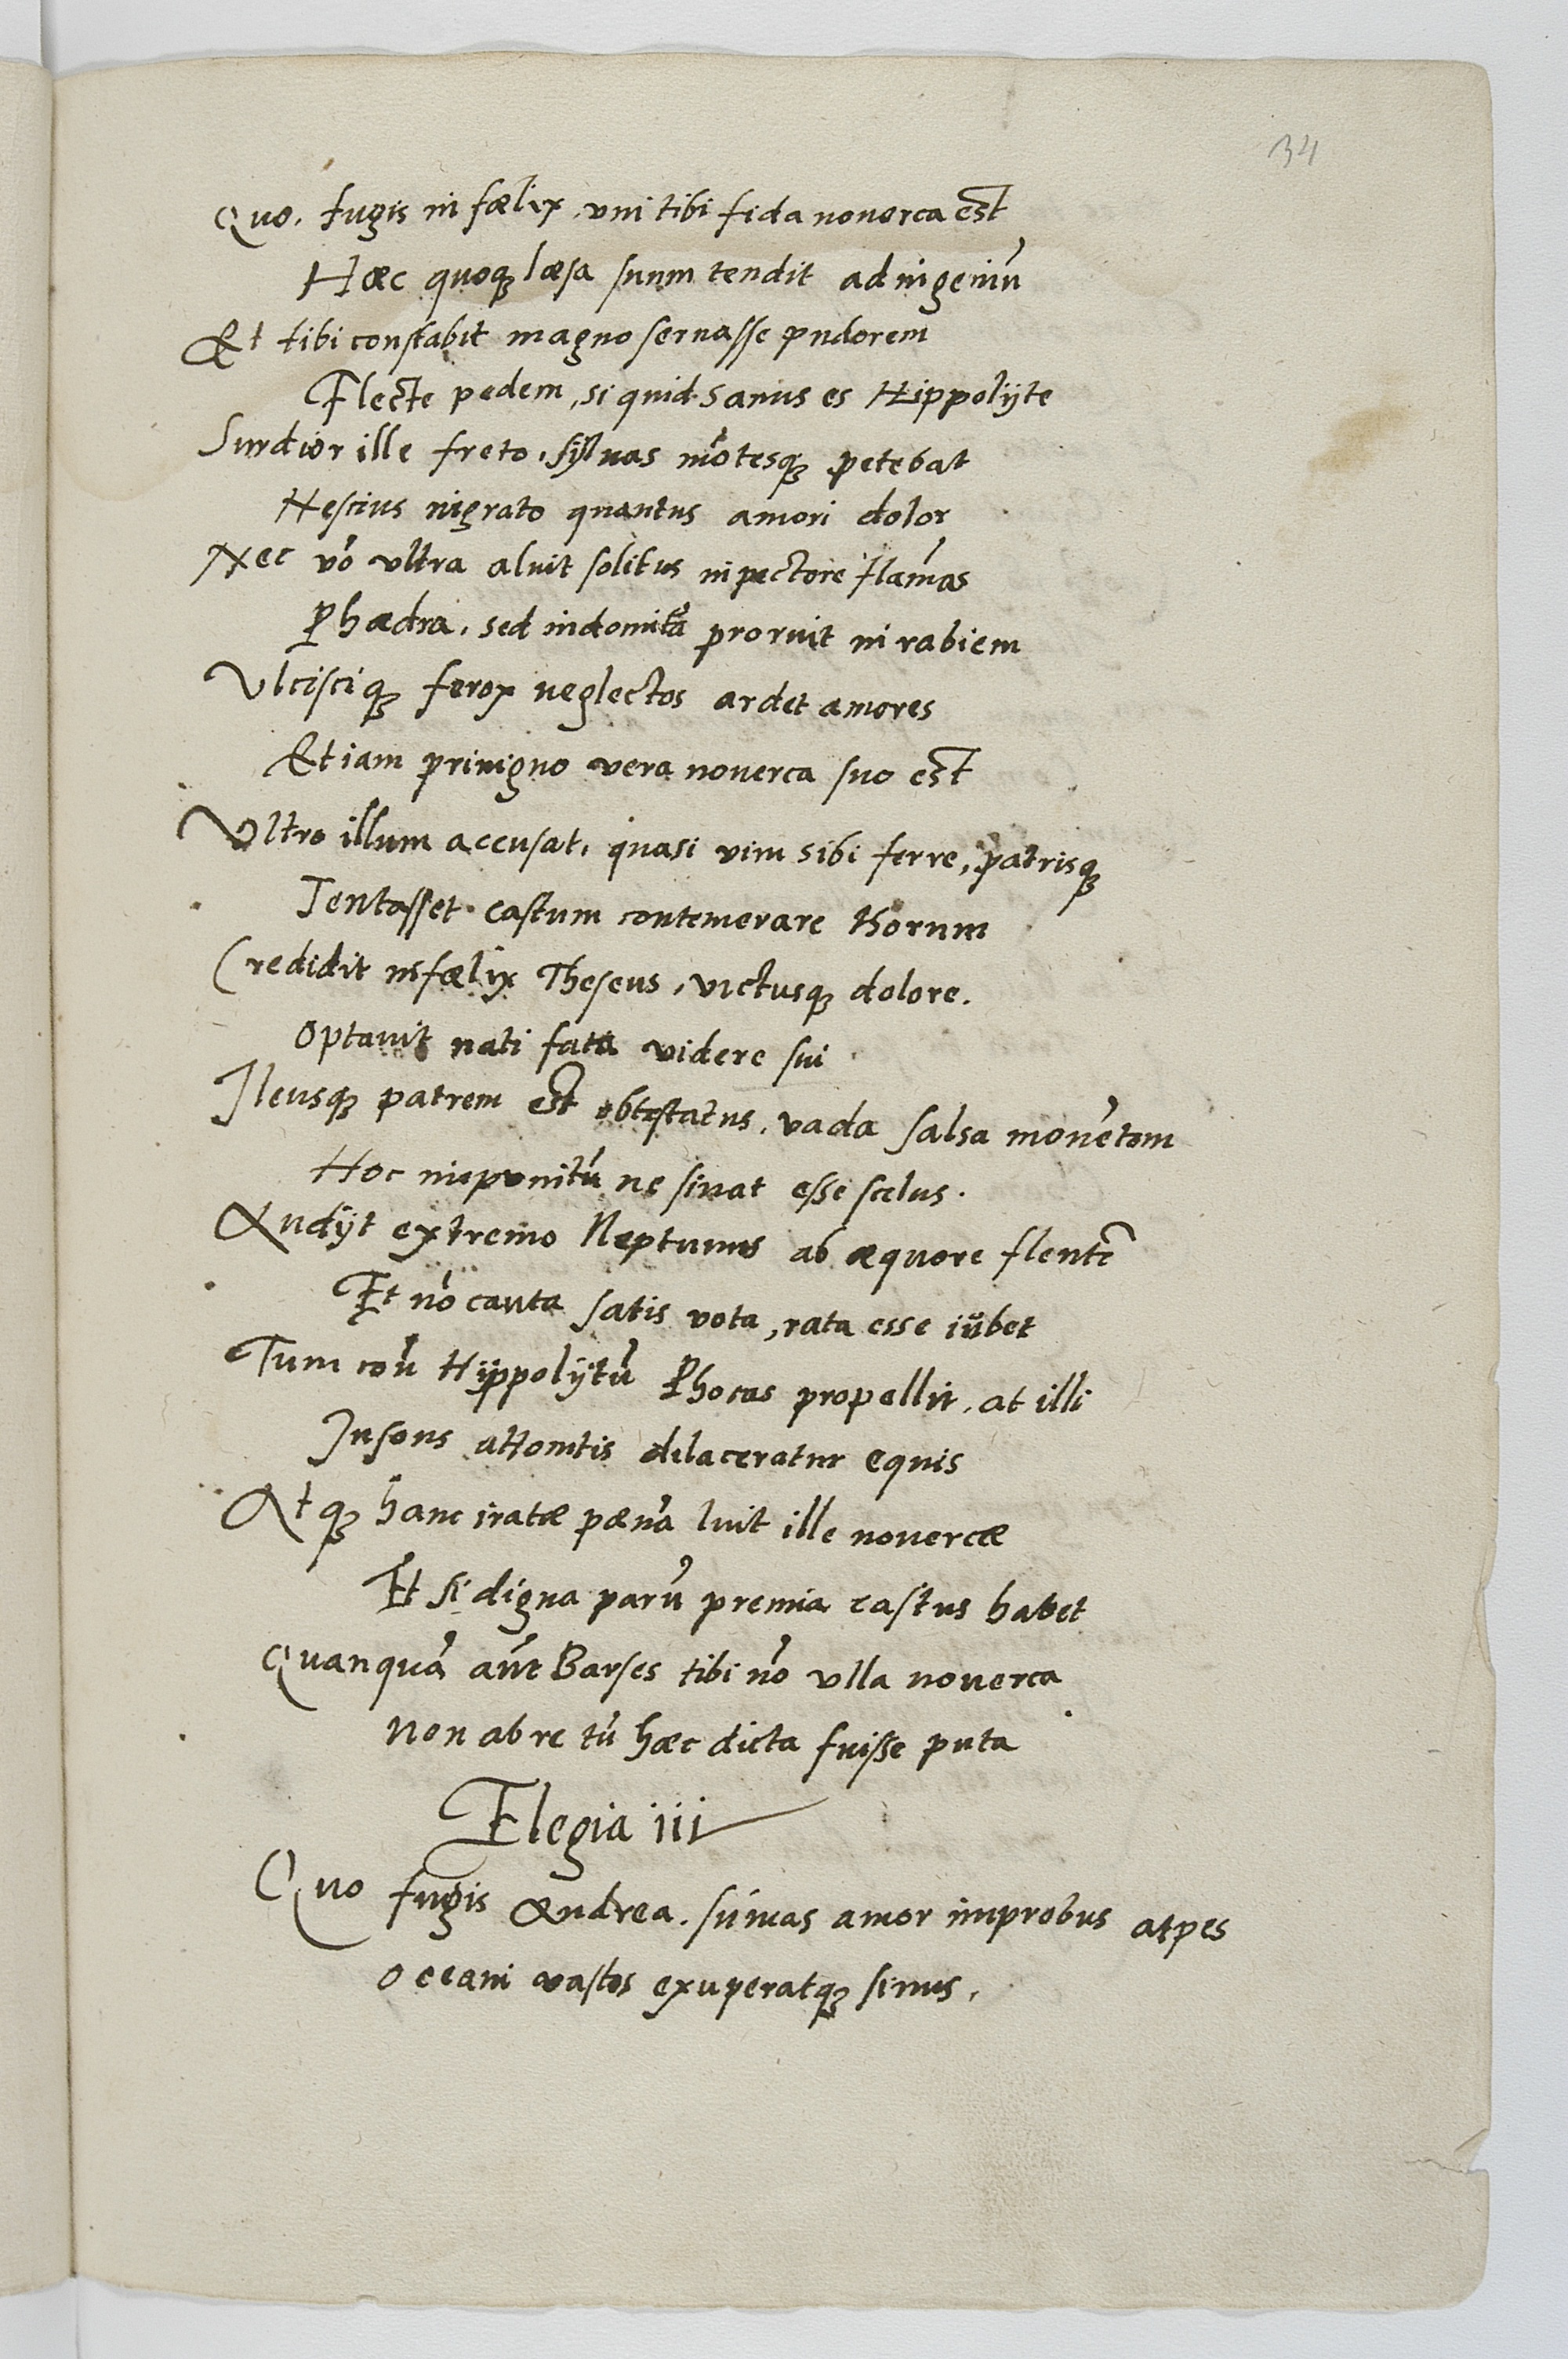 34
Quo. fugis infælix, vni tibi fida nouerca est
Hæc quoq læsa suum tendit ad ingeniũ
Et tibi constabit magno seruasse pudorem
Flecte pedem, si quid sanus es Hippolÿte
Surdior ille freto, sÿluas mõtesq petebat
Nescius ingrato quantus amori dolor
Nec võ vltra aluit solitus in pectore flam̃as
Phædra, sed indomitã proruit in rabiem
Vlcisciq ferox neglectos ardet amores
Et iam priuigno vera nouerca suo est
Vltro illum accusat, quasi vim sibi ferre, patrisq
Tentasset castum contemerare thorum
Credidit infælix Theseus, victusq dolore.
Optauit nati fata videre sui
Flensq patrem est obtestatus, vada salsa mouẽtem
Hoc inpunitũ ne sinat esse scelus.
Audÿt extremo Neptunus ab æquore flentẽ
Et nõ cauta satis vota, rata esse iŭbet
Tum coñ Hippolÿtũ Phocas propellit, at illi
Insons attonitis dilaceratur equis
Atq hanc iratæ pænã luit ille nouercæ
Et si digna parũ premia castus habet
Quanquã aũt Barses tibi nõ vlla nouerca
Non ab re tñ hæc dicta fuisse puta
Elegia iii
Quo fugis Andrea. sũmas amor improbus alpes
Oceani vastos exuperatq sinus.